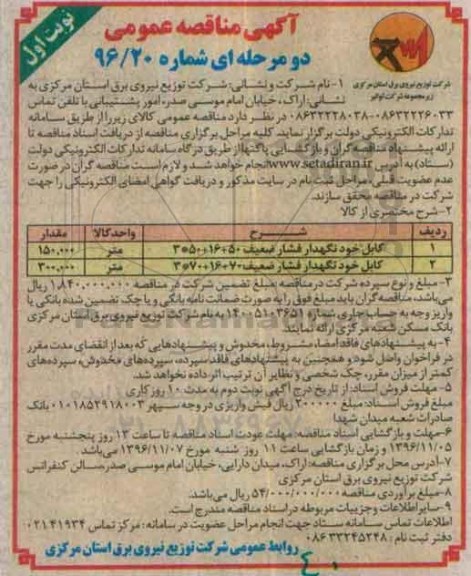 نوبت اول
آگهی مناقصه عمومی
دو مرحله ای شماره ۹۶/۲۰
شرکت توزیع نیروی برق استان مرکزی
زیرمجموعه شرکت توانیر
۱-نام شرکت و نشانی: شرکت توزیع نیروی برق استان مرکزی به
نشانی: اراک، خیابان امام موسی صدر، امور پشتیبانی با تلفن تماس
۰۸۶۳۲۲۲۶۰۳۳-۰۸۶۳۲۲۲۸۰۳۸ در نظر دارد مناقصه عمومی کالای زیر را از طریق سامانه
تدارکات الکترونیکی دولت برگزار نماید. کلیه مراحل برگزاری مناقصه از دریافت اسناد مناقصه تا
ارائه پیشنهاد مناقصه گران و بازگشایی پاکتها از طریق درگاه سامانه تدارکات الکترونیکی دولت
(ستاد) به آدرس www.setadiran.ir انجام خواهد شد و لازم است مناقصه گران در صورت
عدم عضویت قبلی، مراحل ثبت نام در سایت مذکور و دریافت گواهی امضای الکترونیکی را جهت
شرکت در مناقصه محقق سازند.
۲-شرح مختصری از کالا
ردیف شرح واحد کالا مقدار
۱ کابل خود نگهدار فشار ضعیف ۵۰+۱۶+۵۰*۳ متر ۱۵۰,۰۰۰
۲ کابل خود نگهدار فشار ضعیف ۷۰+۱۶+۷۰*۳ متر ۳۰۰,۰۰۰
۳-مبلغ و نوع سپرده شرکت در مناقصه: مبلغ تضمین شرکت در مناقصه ۱,۸۴۰,۰۰۰,۰۰۰ ریال
می باشد، مناقصه گران باید مبلغ فوق را به صورت ضمانت نامه بانکی و یا چک تضمین شده بانکی یا
واریز وجه به حساب جاری شماره ۱۴۰۰۵۱۰۳۶۵۱ به نام شرکت توزیع نیروی برق استان مرکزی
بانک مسکن شعبه مرکزی ارائه نمایند.
۴-به پیشنهادهای فاقد امضاء، مشروط، مخدوش و پیشنهادهایی که بعد از انقضای مدت مقرر
در فراخوان واصل شود و همچنین به پیشنهادهای فاقد سپرده، سپرده های مخدوش، سپرده های
کمتر از میزان مقرر، چک شخصی و نظایر آن ترتیب اثر داده نخواهد شد.
۵-مهلت فروش اسناد: از تاریخ درج آگهی نوبت دوم به مدت ۱۰ روز کاری
مبلغ فروش اسناد: مبلغ ۲۰۰۰۰۰ ریال فیش واریزی در وجه سپهر ۰۱۰۱۸۵۲۹۱۸۰۰۳ بانک
صادرات شعبه میدان شهدا
۶-مهلت و بازگشایی اسناد مناقصه: مهلت عودت اسناد مناقصه تا ساعت ۱۳ روز پنجشنبه مورخ
۱۳۹۶/۱۱/۰۵ و زمان بازگشایی ساعت ۱۱ روز شنبه مورخ ۱۳۹۶/۱۱/۰۷ می باشد.
۷-آدرس محل برگزاری مناقصه: اراک، میدان دارایی، خیابان امام موسی صدر، سالن کنفرانس
شرکت توزیع نیروی برق استان مرکزی
۸-مبلغ برآوردی مناقصه ۵۴/۰۰۰/۰۰۰/۰۰۰ ریال می باشد.
۹-سایر اطلاعات و جزییات مربوطه در اسناد مناقصه مندرج است.
اطلاعات تماس سامانه ستاد جهت انجام مراحل عضویت در سامانه: مرکز تماس ۰۲۱۴۱۹۳۴
دفتر ثبت نام: ۰۸۶۳۳۲۴۵۲۴۸
روابط عمومی شرکت توزیع نیروی برق استان مرکزی